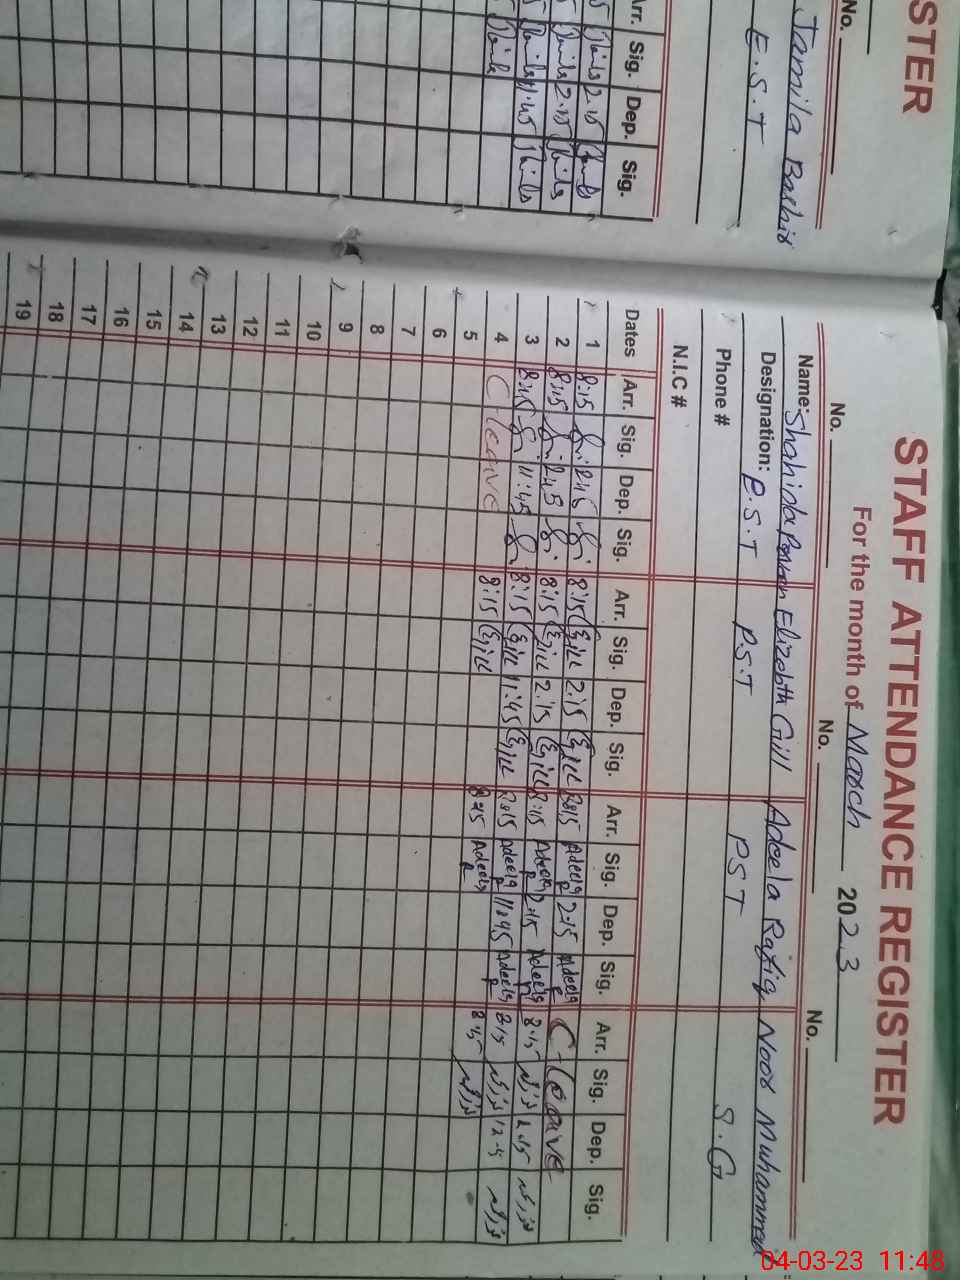 STER
No.
Jamila Bashir
E.S.T
Arr. Sig. Dep. Sig.
2.15
2.15
11.45
STAFF ATTENDANCE REGISTER
For the month of March 2023
No. No. No.
Name: Shahida Elizabith Gill Adeela Rafiq Noor Muhammad
Designation: P.S.T P.S.T PST S.G
Phone #
N.I.C #
Dates Arr. Sig. Dep. Sig. Arr. Sig. Dep. Sig. Arr. Sig. Dep. Sig. Arr. Sig. Dep. Sig.
1 8:15 8:15 E,ill 2:15 E,ill 8:15 Adeela 2:15 Adeela C-Leave
2 8:15 2:45 8:15 E,ill 2:15 E,ill 8:15 Adeela 2:15 Adeela 8:15 2:15
3 8:15 11:45 8:15 E,ill 11:45 E,ill 8:15 Adeela 11:45 Adeela 8:15
4 C-leave 8:15 E,ill 8:15 Adeela 8:15
5
6
7
8
9
10
11
12
13
14
15
16
17
18
19
04-03-23 11:48